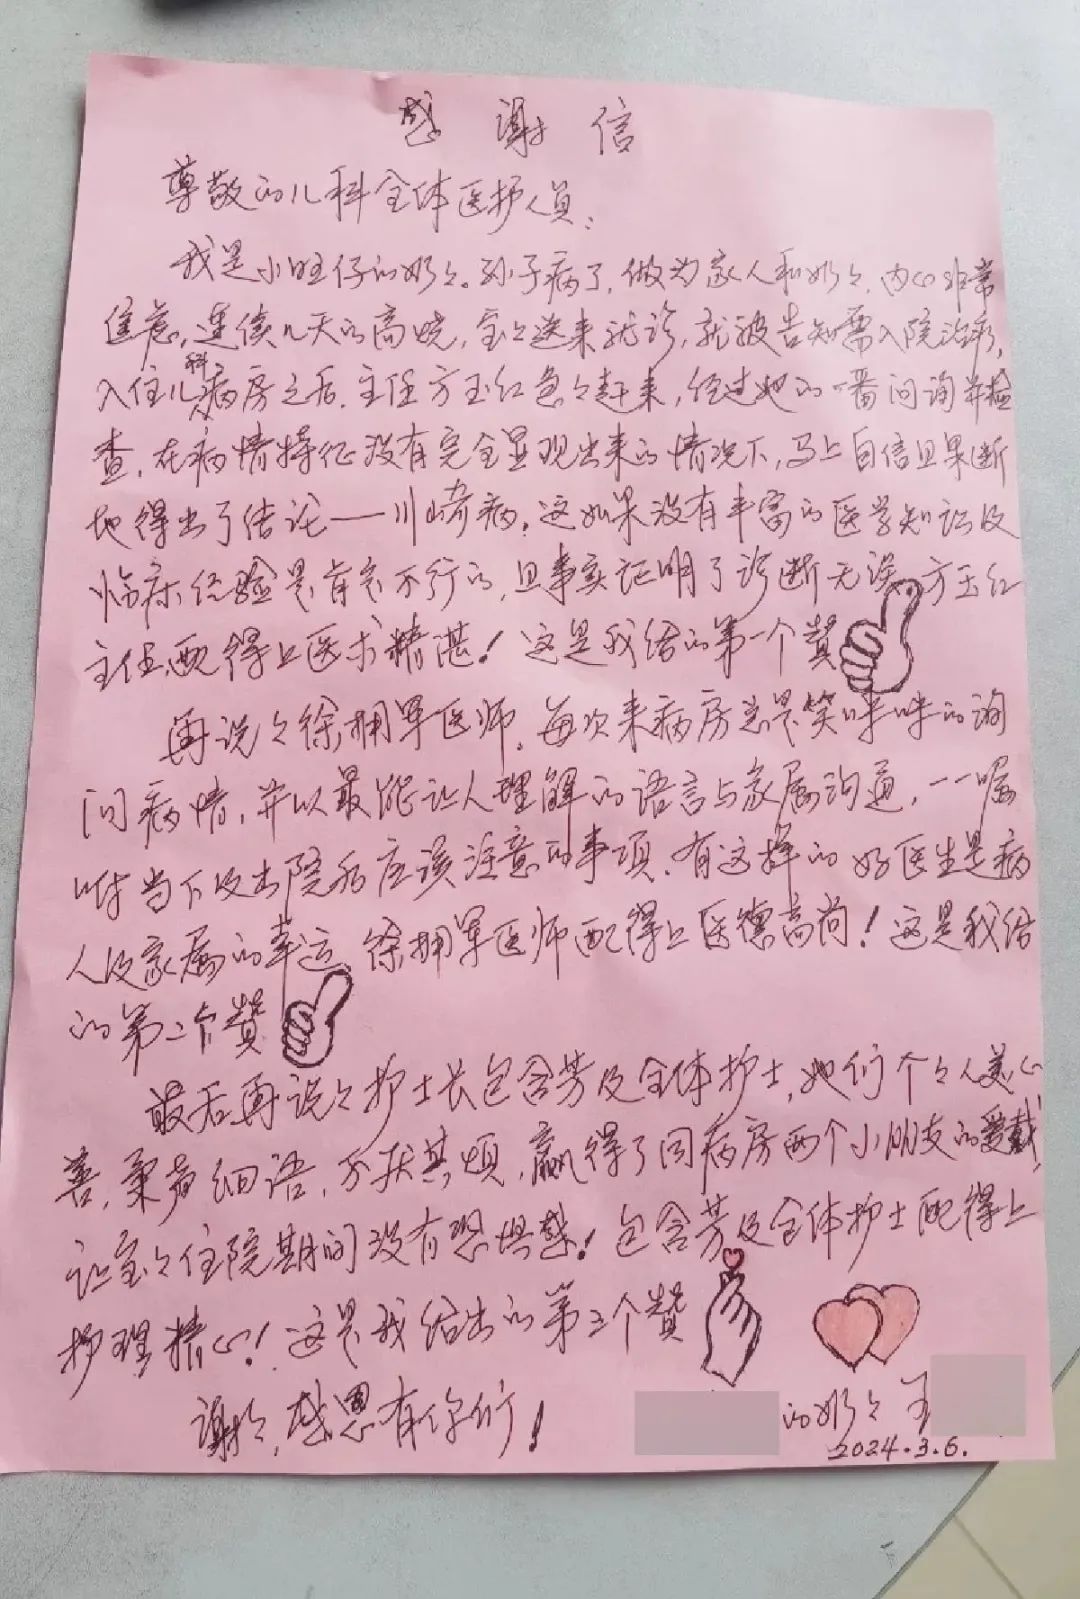 感谢信
尊敬的儿科全体医护人员:
我是小旺仔的奶々。孙子病了,做为家人和奶々,内心非常
焦急,连续几天的高烧,宝々送来就诊,就被告知需入院治疗,
入住儿科病房之后,主任方玉红急々赶来,经过她的一番问询并检
查,在病情特征没有完全显现出来的情况下,马上自信且果断
地得出了结论——川崎病,这如果没有丰富的医学知识及
临床经验是肯定不行的,且事实证明了诊断无误,方玉红
主任,配得上医术精湛!这是我给的第一个赞
再说々徐拥军医师,每次来病房总是笑呼呼的询
问病情,并以最能让人理解的语言与家属沟通,一一嘱
咐当下及出院后应该注意的事项,有这样的好医生是病
人及家属的幸运,徐拥军医师配得上医德高尚!这是我给
的第二个赞
最后再说々护士长包含芳及全体护士,她们个々人美心
善,柔声细语,不厌其烦,赢得了同病房两个小朋友的爱戴,
让宝々住院期间没有恐惧感!包含芳及全体护士配得上
护理精心!这是我给出的第三个赞
谢谢,感恩有你们!
的奶々 王
2024.3.6.